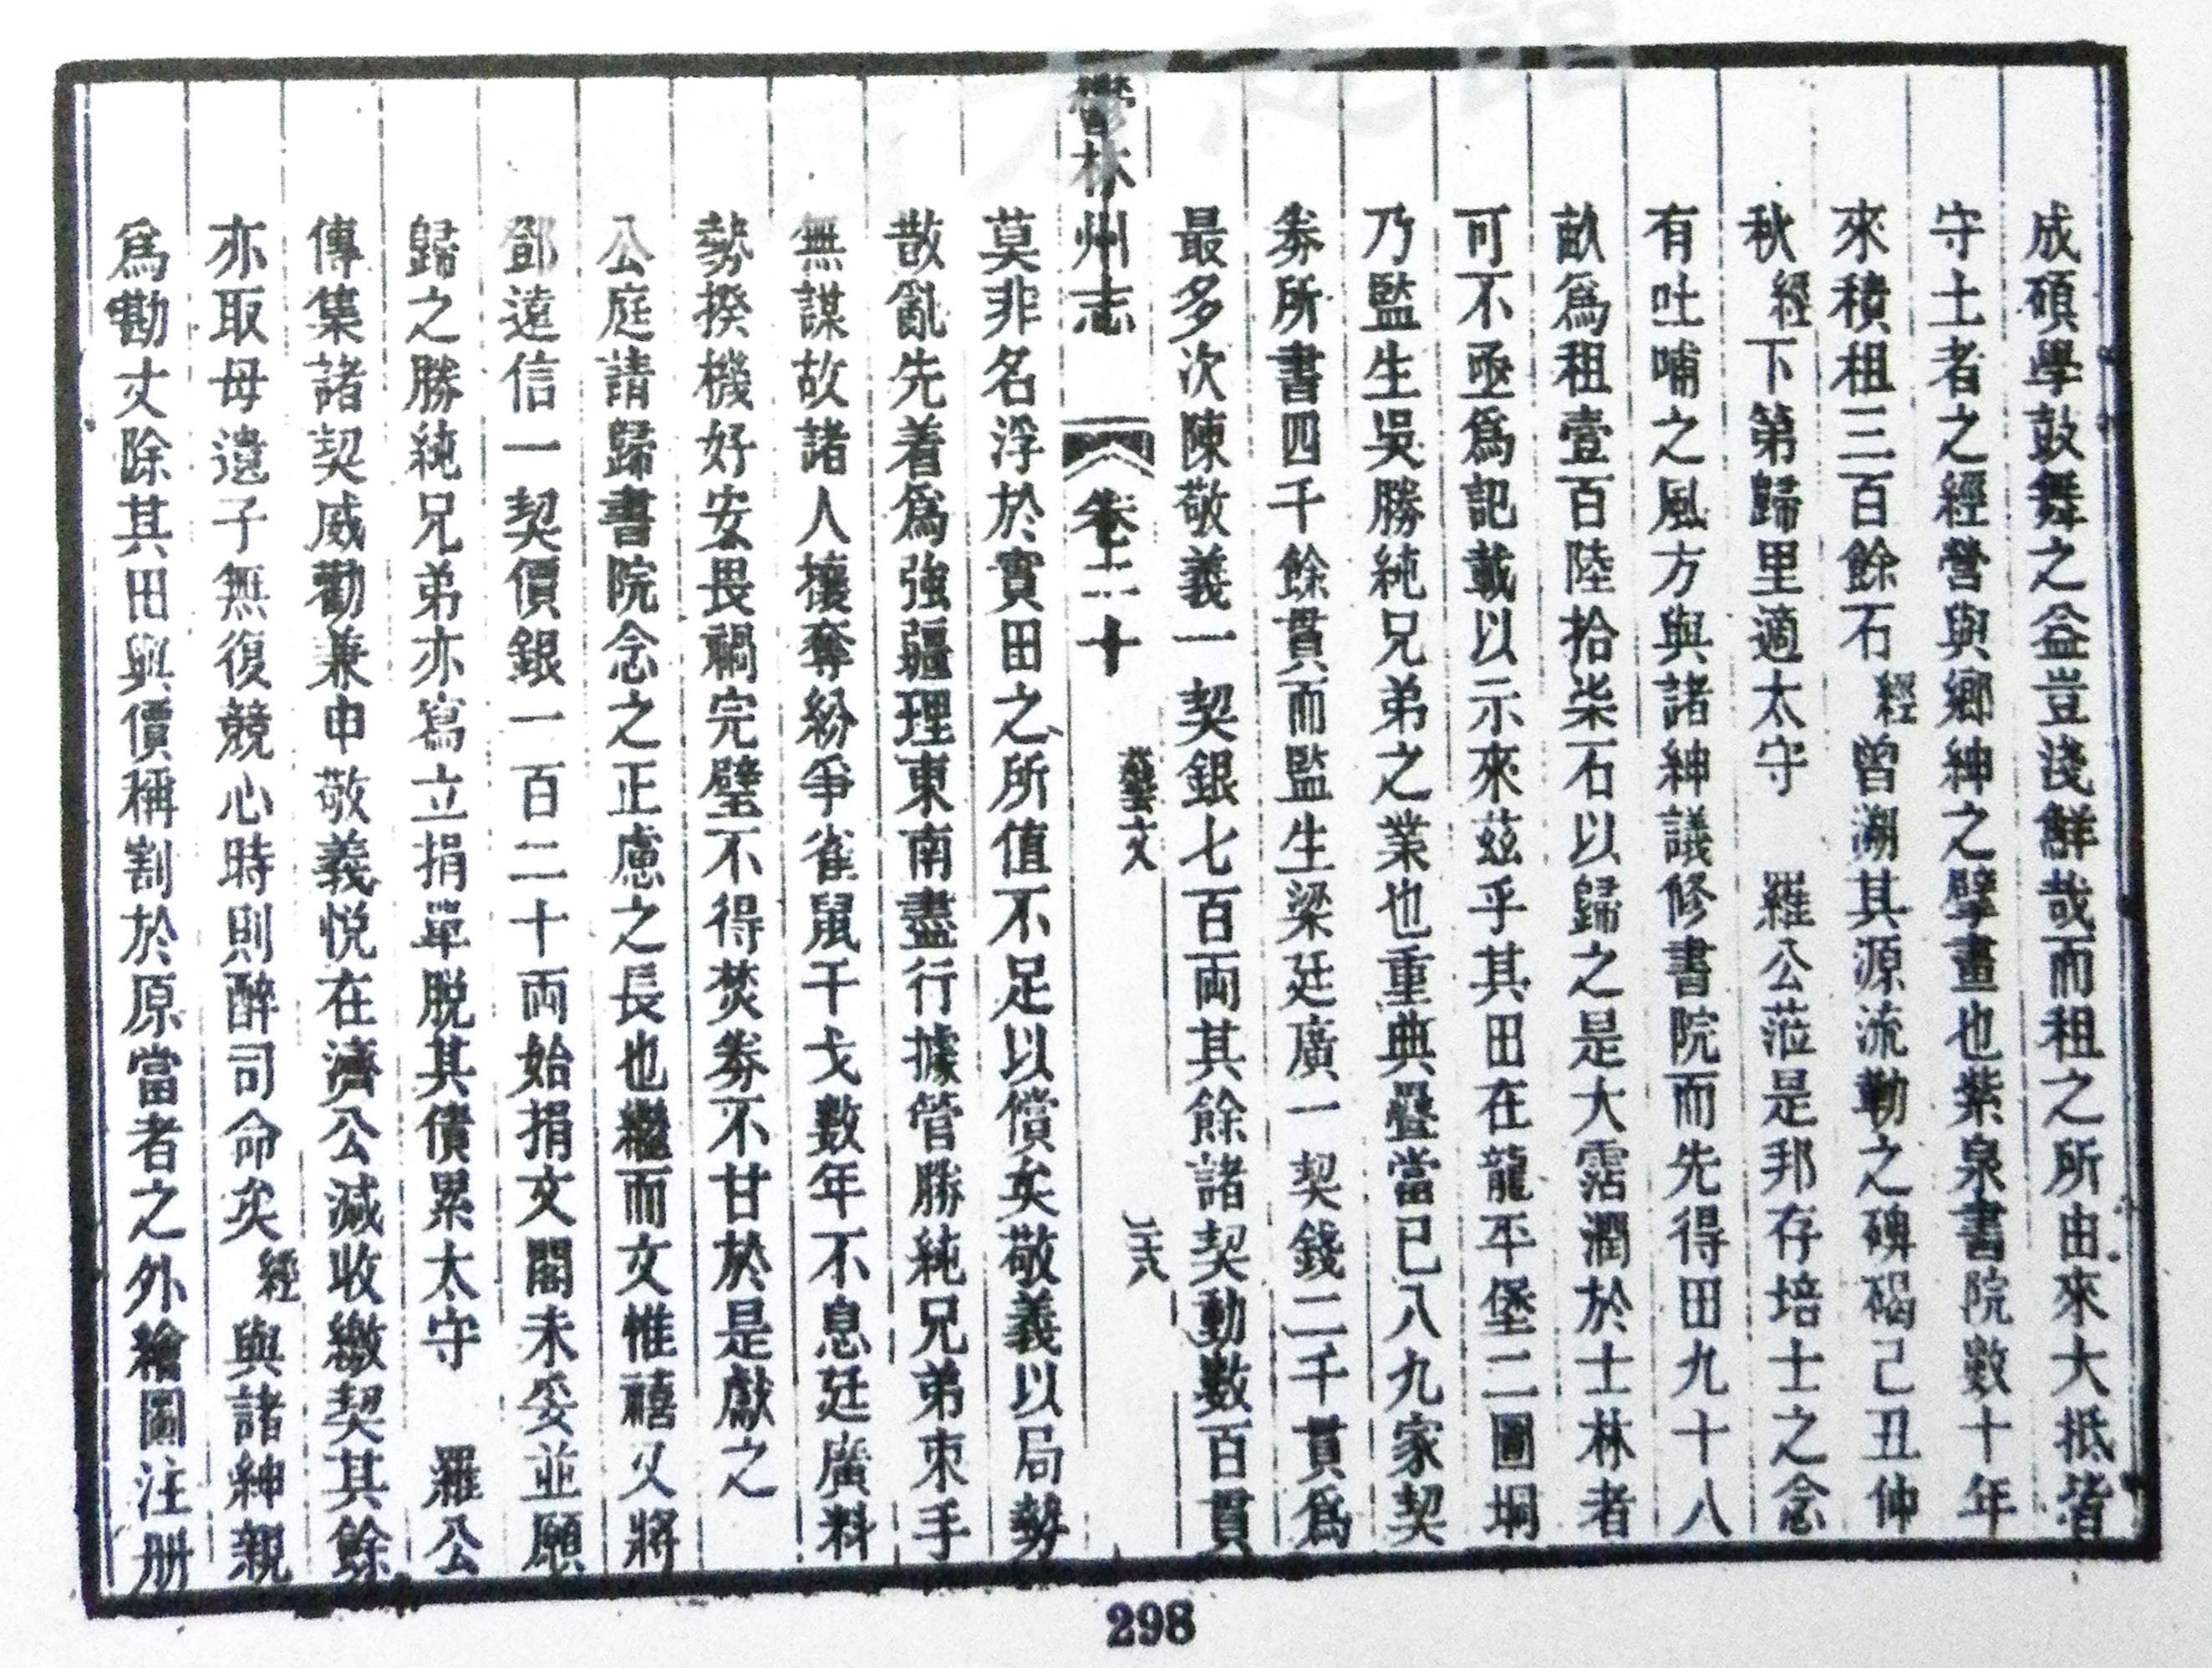 成碩學鼓舞之益豈淺鮮哉而租之所由來大抵皆
守土者之經營與鄉紳之擘畫也紫泉書院數十年
來積租三百餘石經曾溯其源流勒之碑碣己丑仲
秋經下第歸里適太守 羅公蒞是邦存培士之念
有吐哺之風方與諸紳議修書院而先得田九十八
畝為租壹百陸拾柒石以歸之是大霑潤於士林者
可不亟為記載以示來茲乎其田在龍平堡二圖垌
乃監生吳勝純兄弟之業也重典疊當已八九家契
券所書四千餘貫而監生梁廷廣一契錢二千貫為
最多次陳敬義一契銀七百両其餘諸契動數百貫
鬱林州志 卷二十 藝文 三六
莫非名浮於實田之所值不足以償矣敬義以局勢
散亂先着為強疆理東南盡行據管勝純兄弟束手
無謀故諸人攘奪紛爭雀鼠干戈數年不息廷廣料
勢揆機好安畏禍完璧不得焚券不甘於是獻之
公庭請歸書院念之正慮之長也繼而文惟禧乂將
鄧遠信一契價銀一百二十両始捐文閣未妥並願
歸之勝純兄弟亦寫立捐單脫其債累太守 羅公
傳集諸契威勸兼申敬義悅在濟公減收繳契其餘
亦取母遺子無復競心時則醉司命矣經與諸紳親
為勘丈除其田與價稱割於原當者之外繪圖注册
298